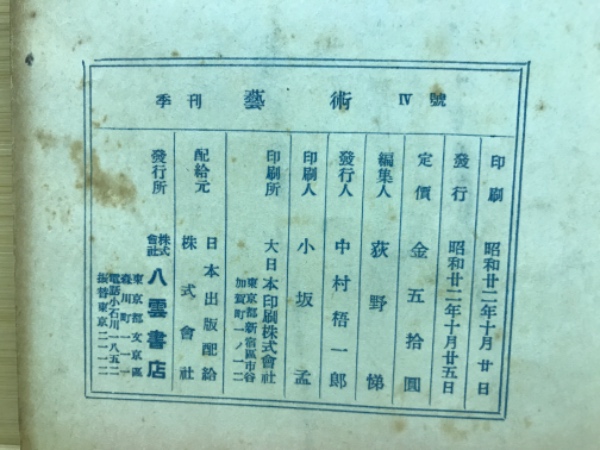 季刊 藝術 Ⅳ號
印刷 昭和廿二年十月廿日
發行 昭和廿二年十月廿五日
定價 金五拾圓
編集人 荻野悌
發行人 中村梧一郎
印刷人 小坂孟
印刷所 大日本印刷株式會社
東京都新宿區市谷
加賀町一ノ一二
配給元 日本出版配給
株式會社
發行所 株式會社 八雲書店
東京都文京區
森川町一一一
電話小石川一八五二
振替東京二一一二